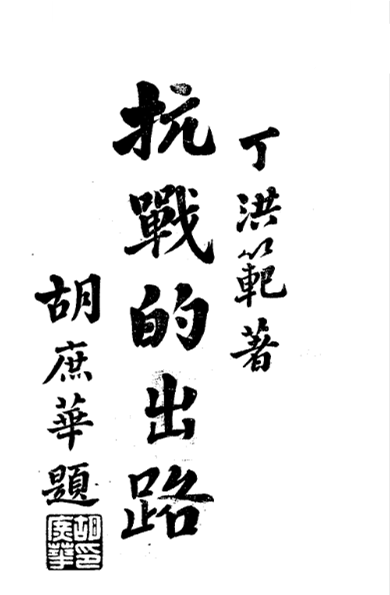 丁洪範著
抗戰的出路
胡庶華題
胡庶華印